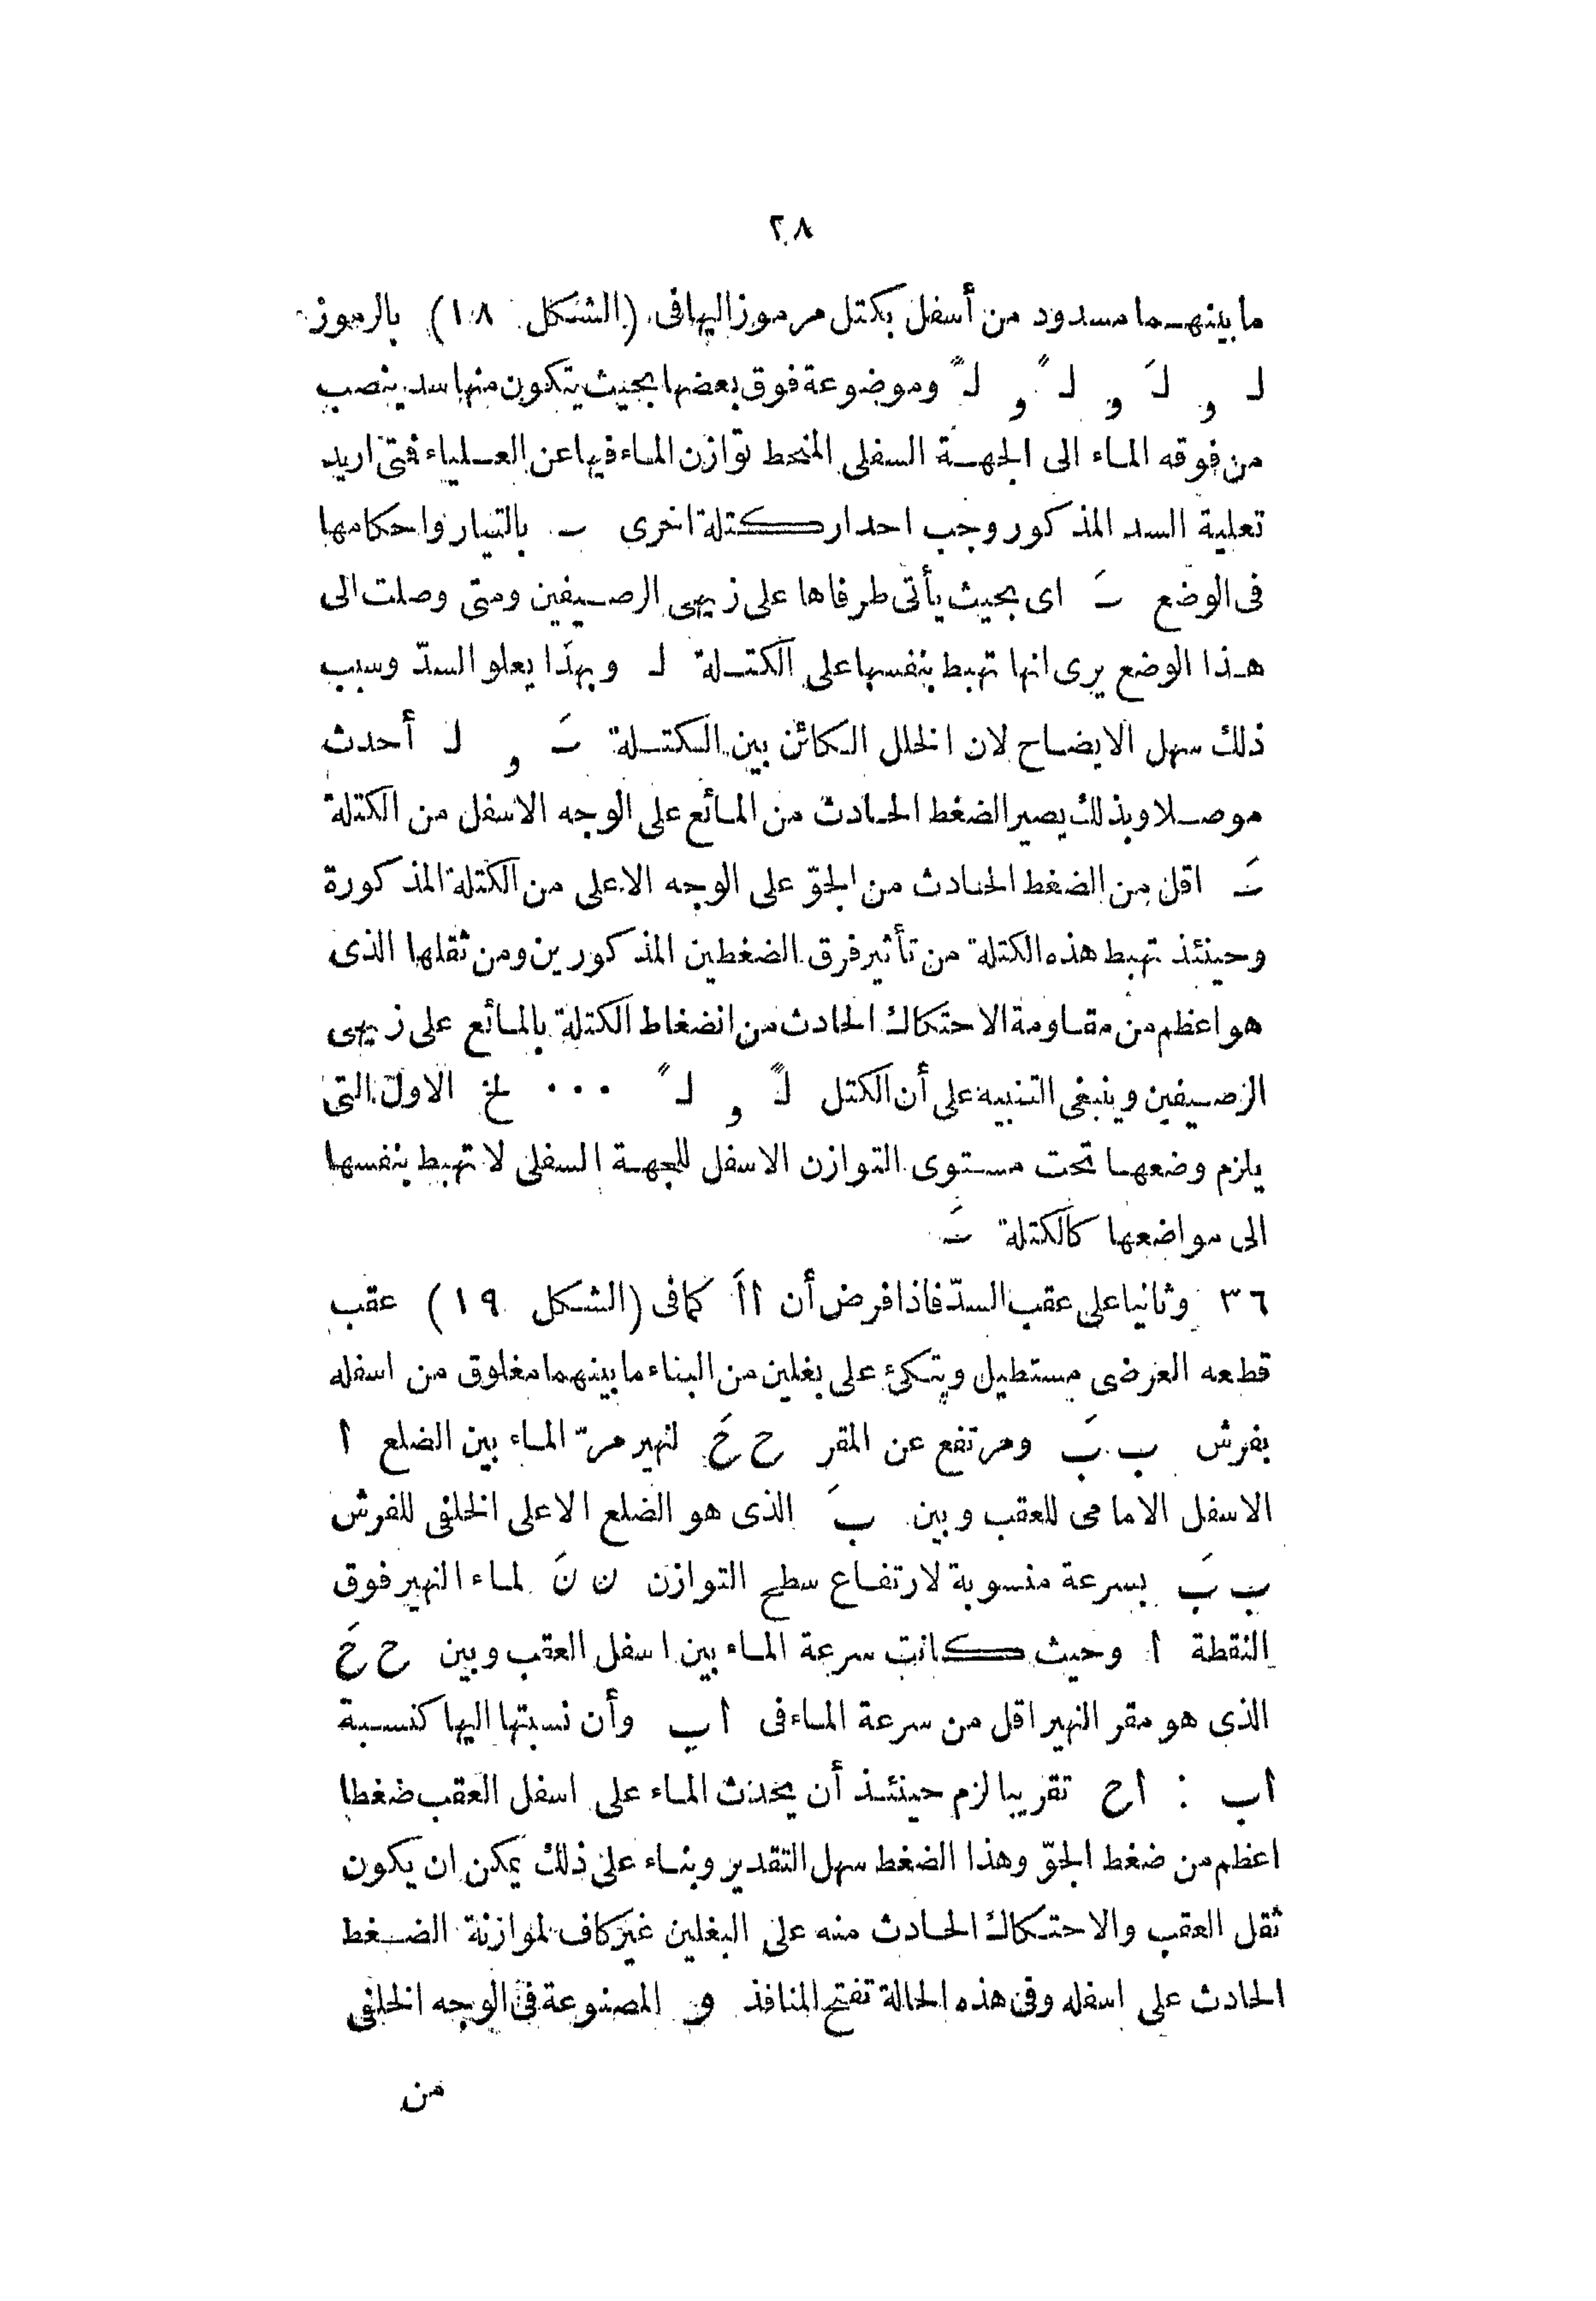 ٢٨
ما بينهما مسدود من أسفل بكتل مرموز اليها فى (الشكل ١٨) بالرموز
لـ و لـَ و لـً و لـ ًَ وموضوعة فوق بعضها بحيث يتكون منها سد ينصب
من فوقه الماء الى الجهة السفلى المنحط توازن الماء فيها عن العلياء فتى اريد
تعلية السد المذكور وجب احدار كتلة اخرى ـ بالتيار واحكامها
فى الوضع ـَ اى بحيث يأتى طرفاها على زيهى الرصيفين ومتى وصلت الى
هذا الوضع يرى انها تهبط بنفسها على الكتلة لـ وبهذا يعلو السدّ وسبب
ذلك سهل الايضاح لان الخلل الكائن بين الكتلة ـَ و لـ أحدث
موصلا وبذلك يصير الضغط الحادث من المائع على الوجه الاسفل من الكتلة
ـَ اقل من الضغط الحادث من الجوّ على الوجه الاعلى من الكتلة المذكورة
وحينئذ تهبط هذه الكتلة من تأثير فرق الضغطين المذكورين ومن ثقلها الذى
هو اعظم من مقاومة الاحتكاك الحادث من انضغاط الكتلة بالمائع على زيهى
الرصيفين وينبغى التنبيه على أن الكتل لـً و لـً ... لخ الاول التى
يلزم وضعها تحت مستوى التوازن الاسفل للجهة السفلى لا تهبط بنفسها
الى مواضعها كالكتلة ـَ
٣٦ وثانيا على عقب السدّ فاذا فرض أن ااَ كما فى (الشكل ١٩) عقب
قطعه العرضى مستطيل ويتكئ على بغلين من البناء ما بينهما مغلوق من اسفله
بفرش ب بَ ومرتفع عن المقر ح حَ لنهير مرّ الماء بين الضلع ا
الاسفل الامامى للعقب وبين بَ الذى هو الضلع الاعلى الخلفى للفرش
ب بَ بسرعة منسوبة لارتفاع سطح التوازن ن نَ لماء النهير فوق
النقطة ا وحيث كانت سرعة الماء بين اسفل العقب وبين ح حَ
الذى هو مقر النهير اقل من سرعة الماء فى اب وأن نسبتها اليها كنسبة
اب : اح تقريبا لزم حينئذ أن يحدث الماء على اسفل العقب ضغطا
اعظم من ضغط الجوّ وهذا الضغط سهل التقدير وبناء على ذلك يمكن ان يكون
ثقل العقب والاحتكاك الحادث منه على البغلين غير كاف لموازنة الضغط
الحادث على اسفله وفى هذه الحالة تفتح المنافذ و المصنوعة فى الوجه الخلفى
من